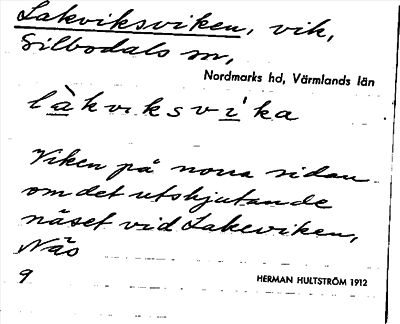 Lakviksviken, vik,
Silbodals sn,
Nordmarks hd, Värmlands län
làkviksvi'ka
Viken på norra sidan
om det utskjutande
näset vid Lakeviken,
Näs
9
HERMAN HULTSTRÖM 1912